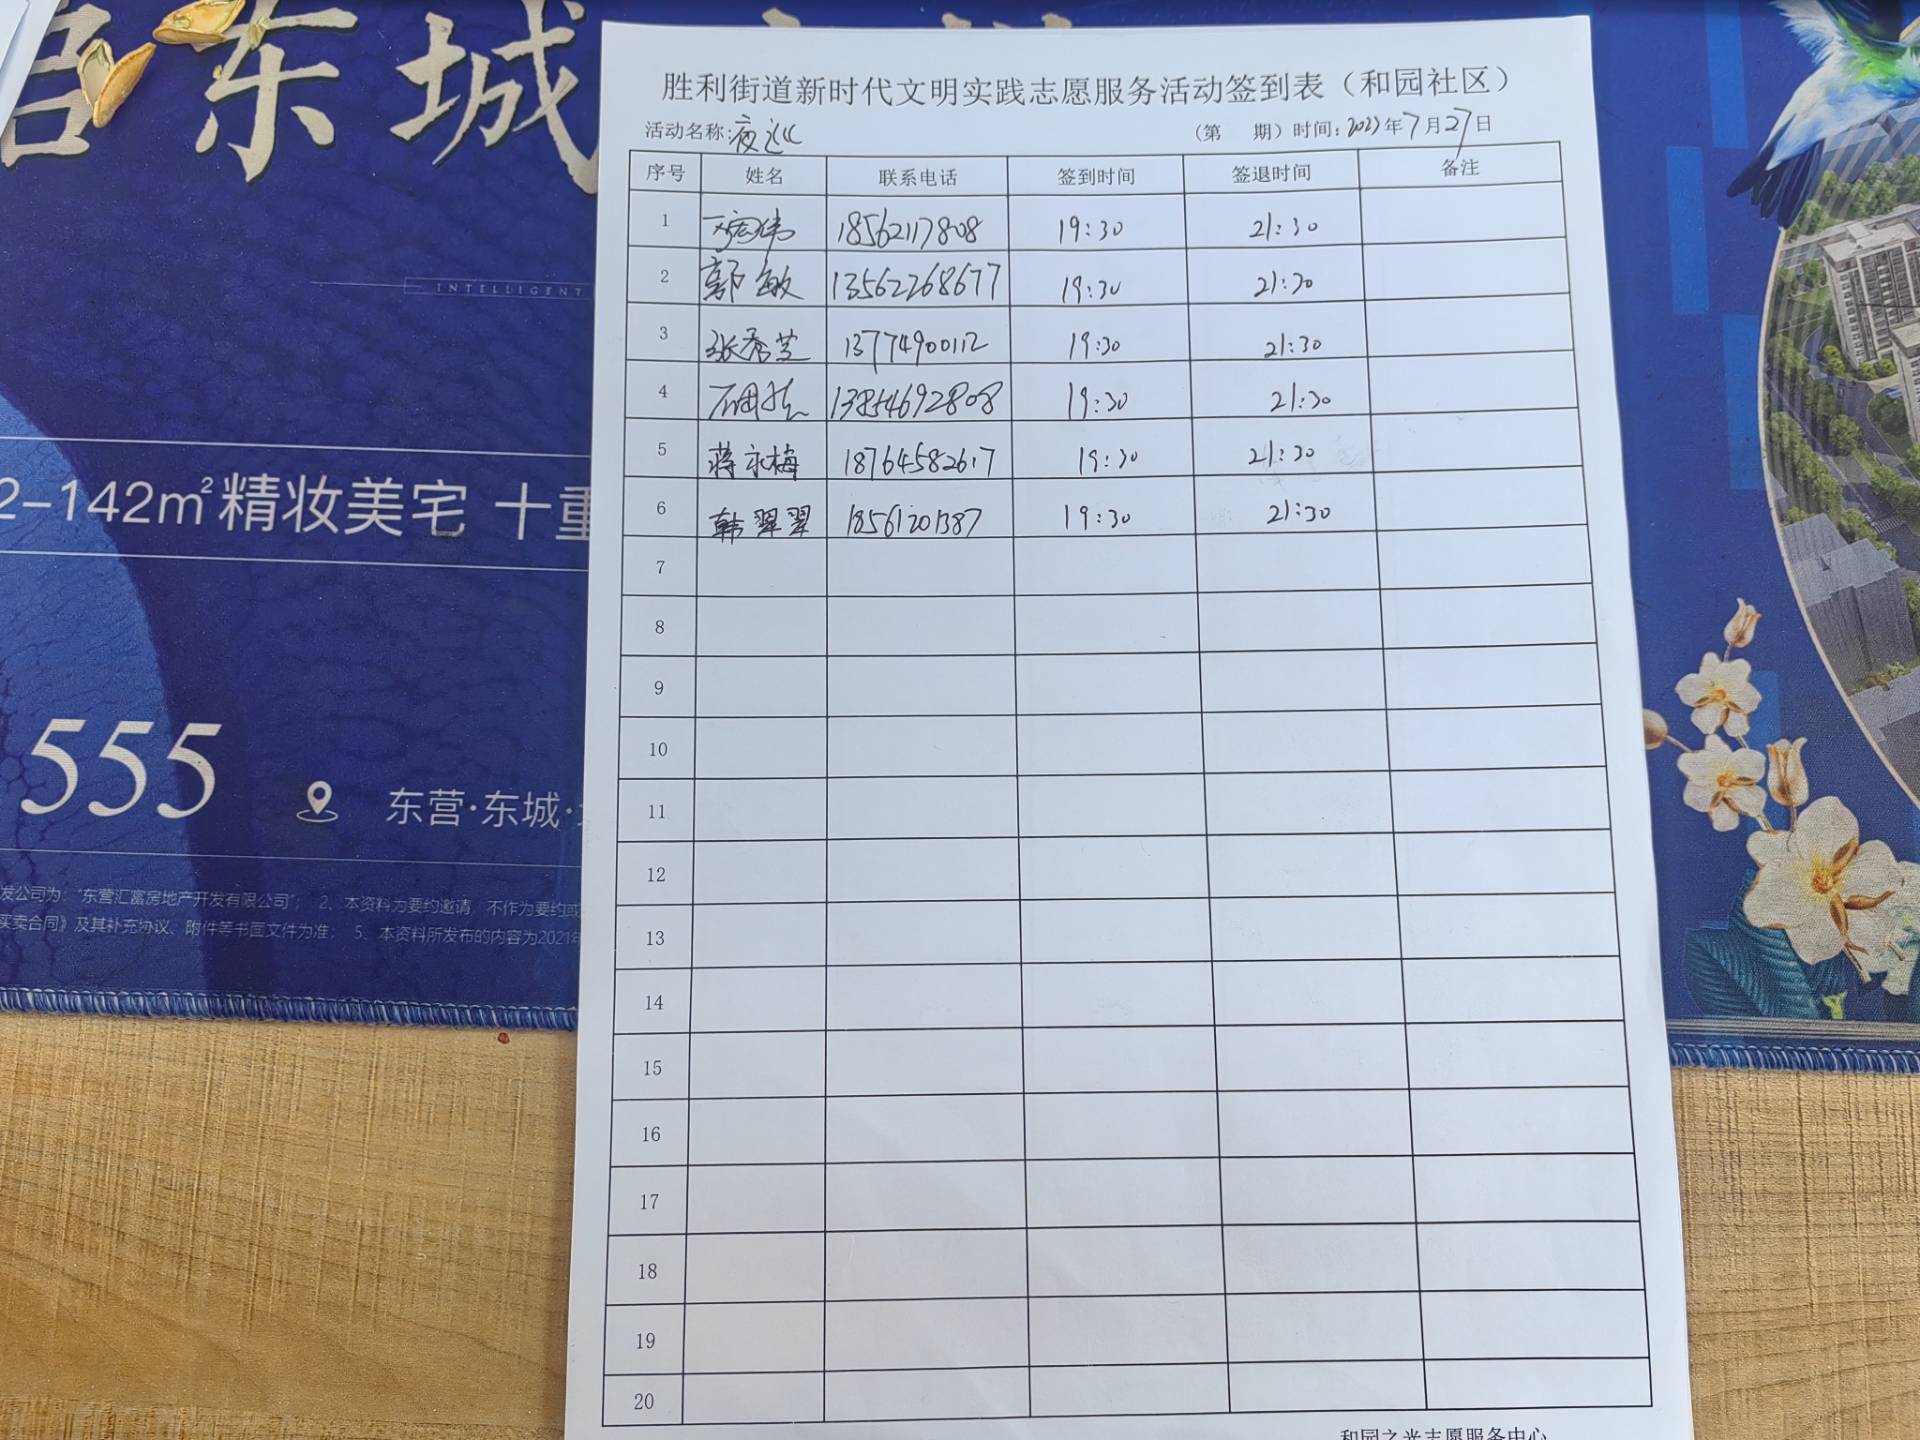 东城
INTELLIGENT
2-142㎡精妆美宅 十重
555
东营·东城·
发公司为：“东营汇富房地产开发有限公司”； 2、本资料为要约邀请，不作为要约或
买卖合同》及其补充协议、附件等书面文件为准； 5、本资料所发布的内容为2021年
胜利街道新时代文明实践志愿服务活动签到表（和园社区）
活动名称:夜巡 （第 期）时间:2023年7月27日
序号 姓名 联系电话 签到时间 签退时间 备注
1 18562117808 19:30 21:30
2 郭敏 13562268677 19:30 21:30
3 张秀芝 13774900112 19:30 21:30
4 13854692808 19:30 21:30
5 蒋永梅 18764582617 19:30 21:30
6 韩翠翠 18561201387 19:30 21:30
7
8
9
10
11
12
13
14
15
16
17
18
19
20
和园之光志愿服务中心